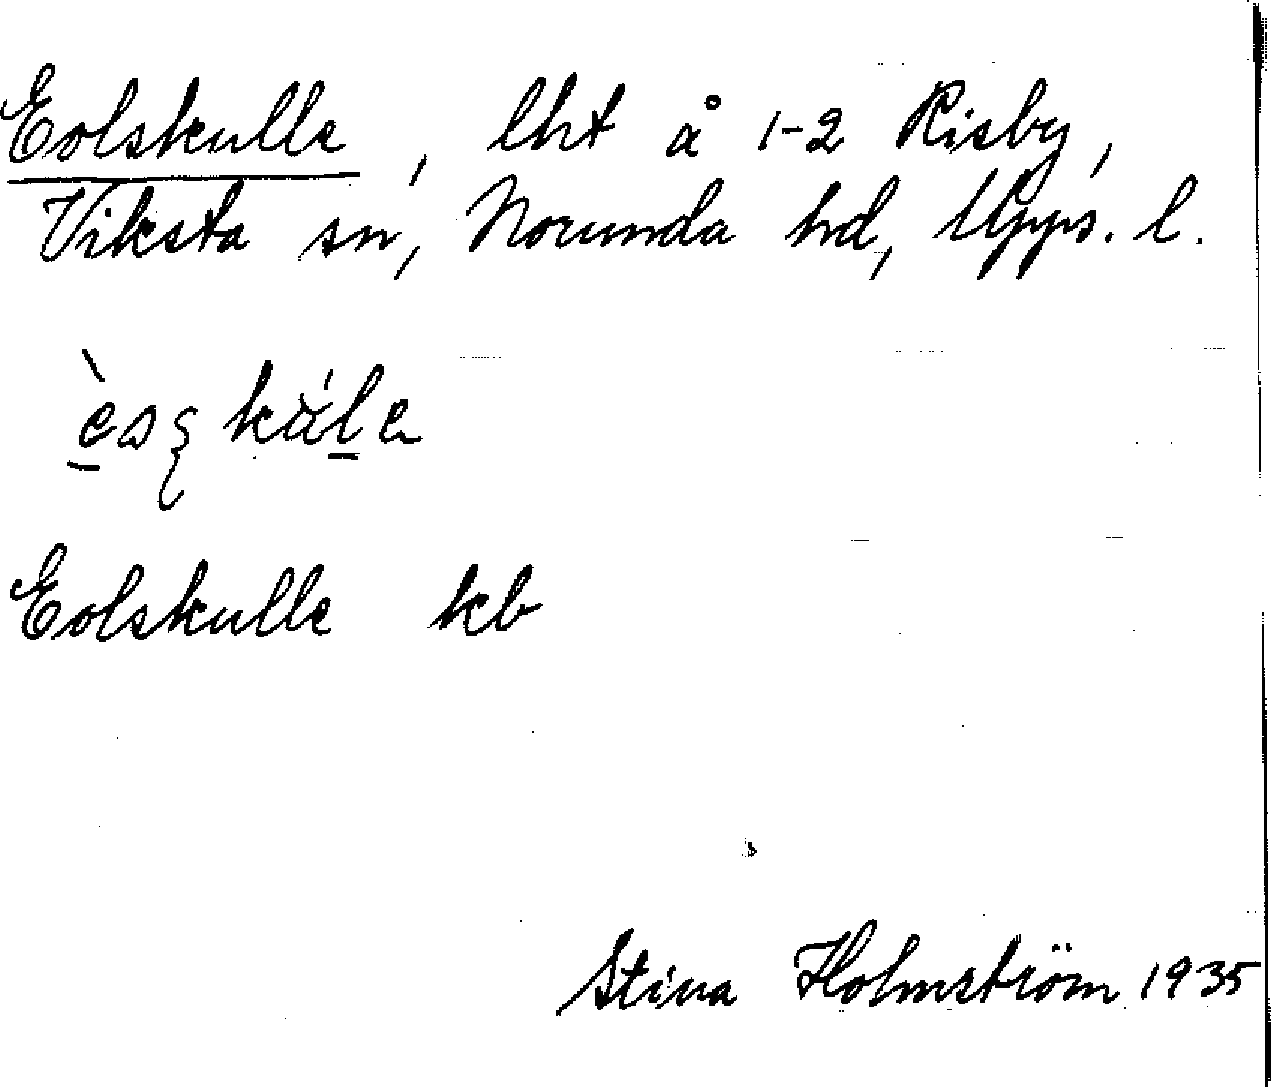 Eolskulle, lht å 1-2 Risby,
Viksta sn, Norunda hd, Upps. l.
Eolskulle kb
Stina Holmström 1935